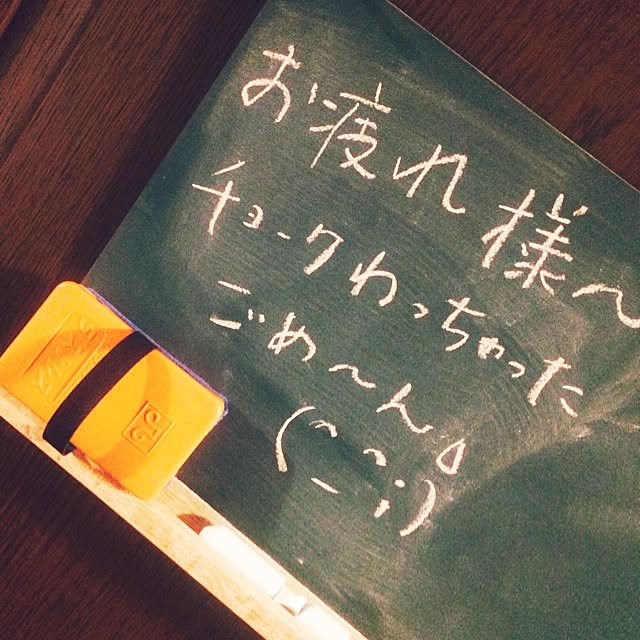 お疲れ様〜
チョークわっちゃった
ごめ〜ん。
(^_^;)